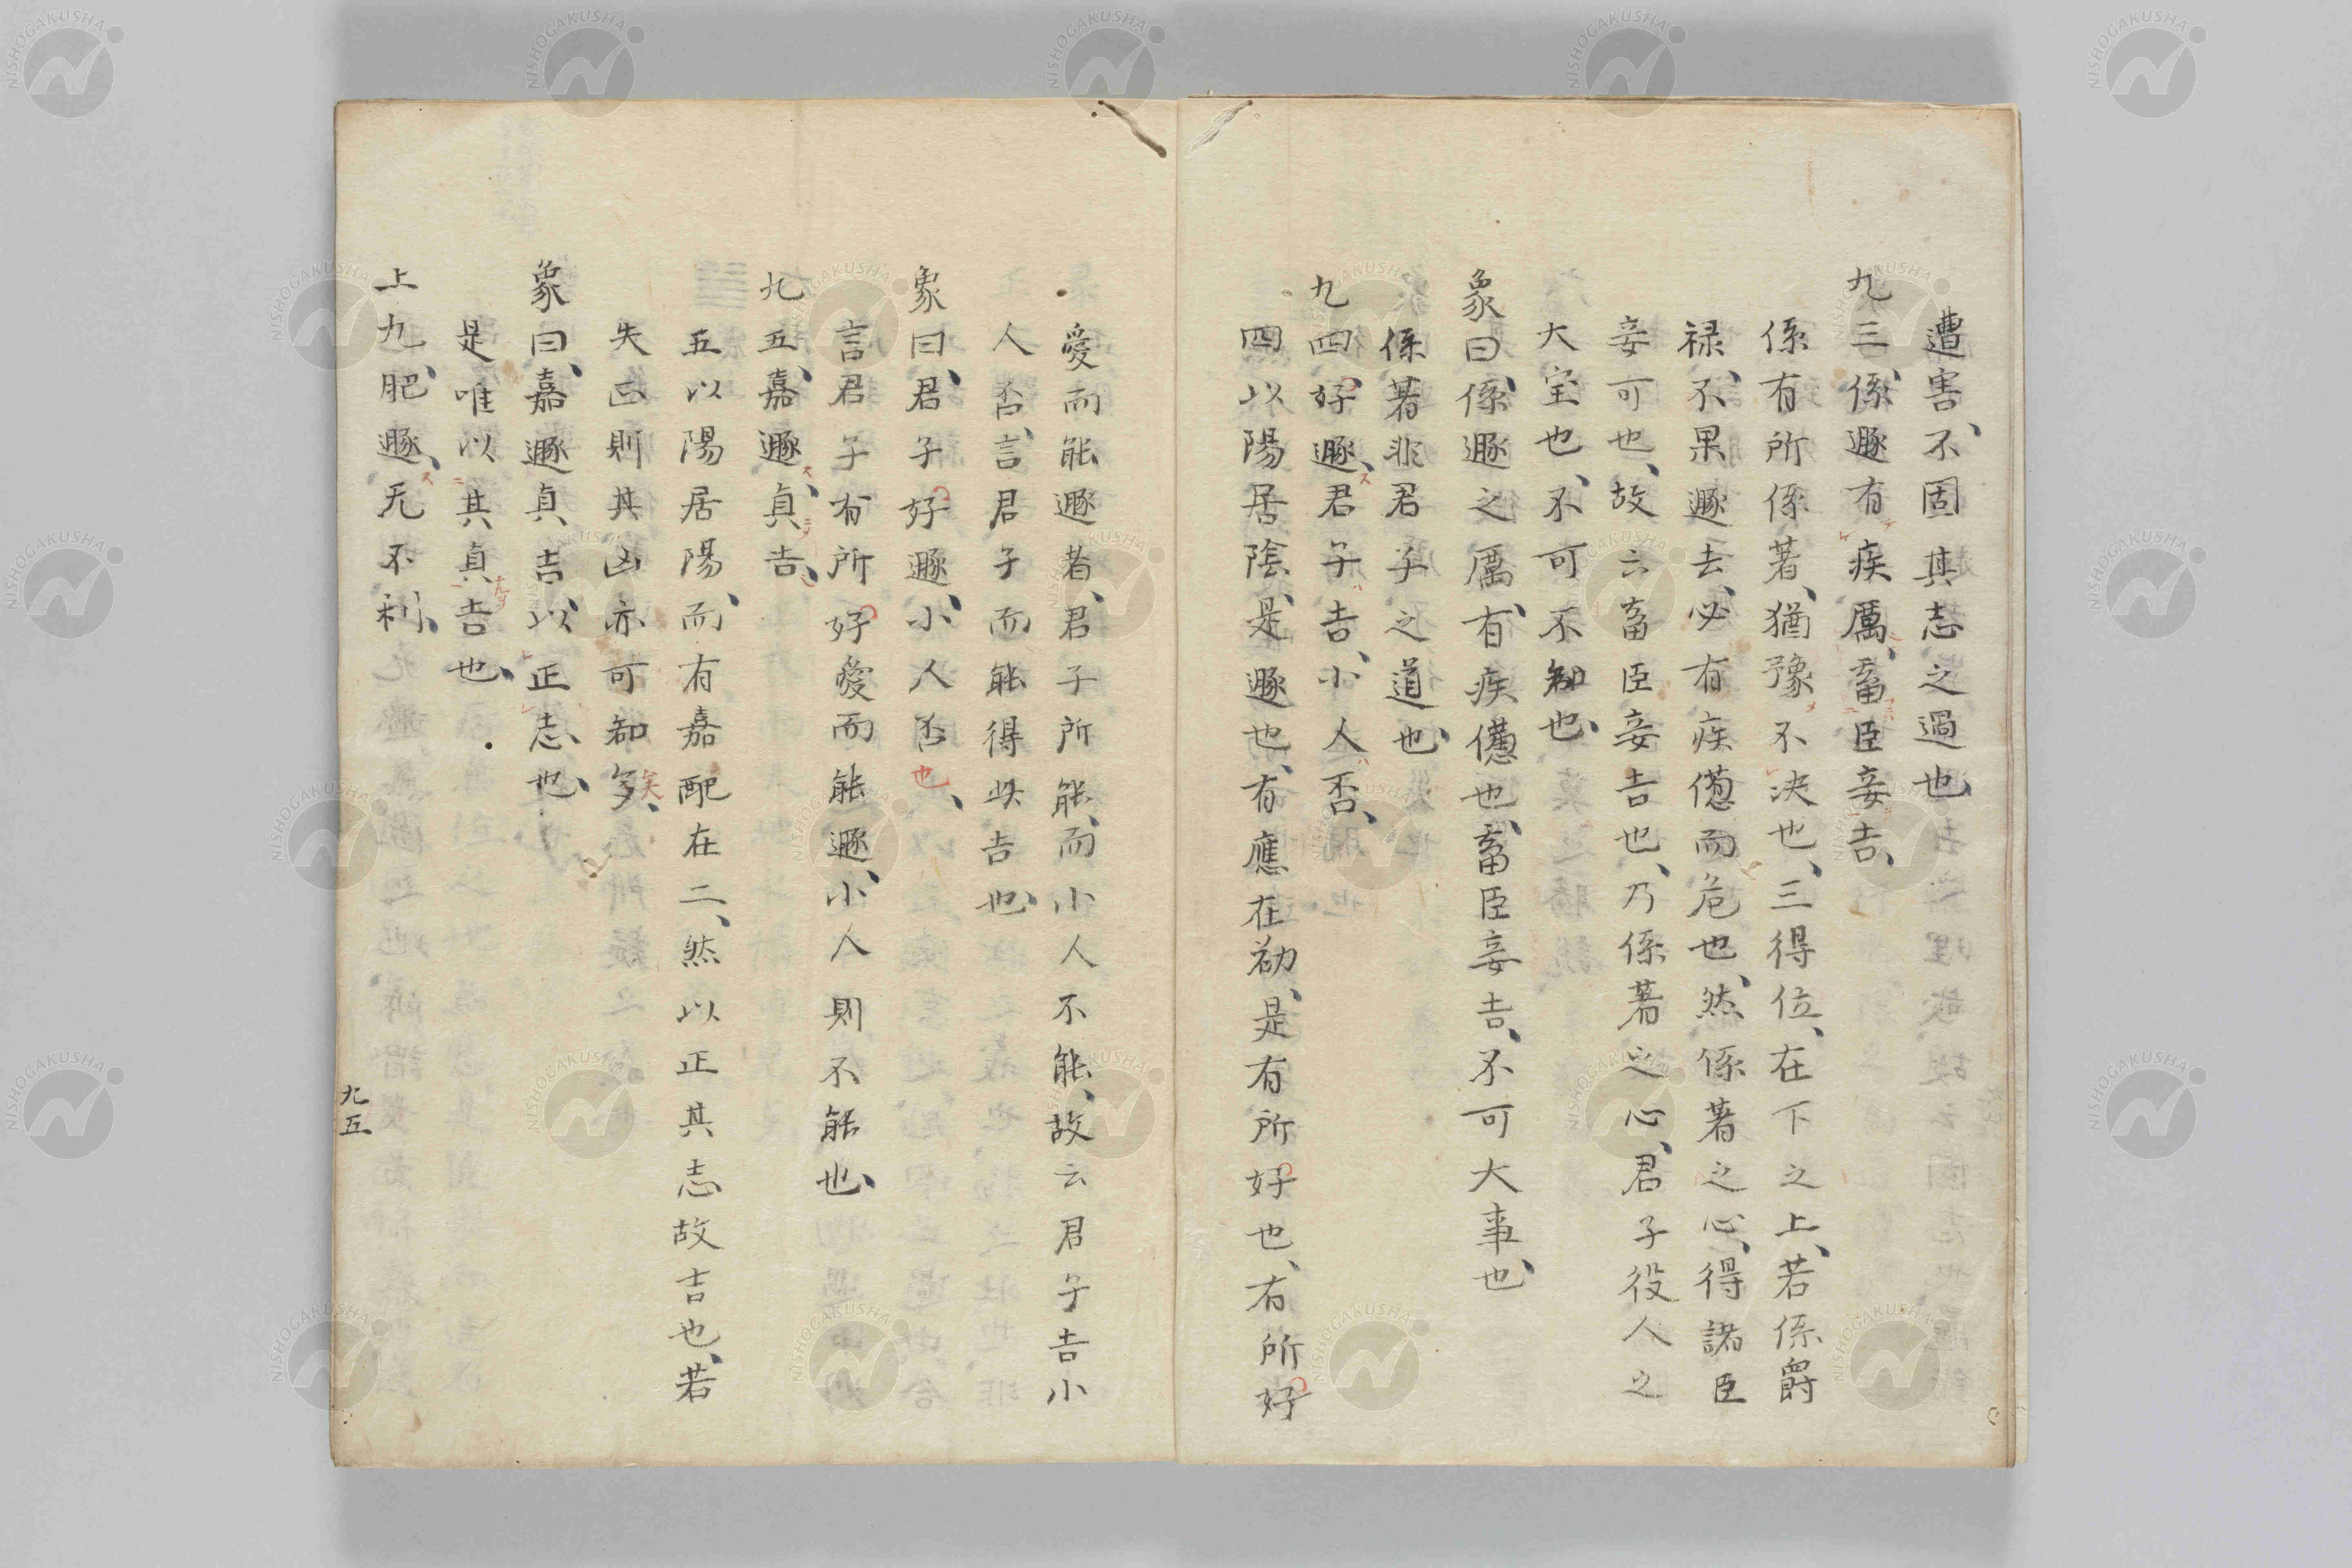 遭害、不固其志之過也、
九三、係遯有疾厲、畜臣妾吉、
係有所係著、猶豫不決也、三得位、在下之上、若係爵
禄、不果遯去、必有疾憊而危也、然係著之心、得諸臣
妾可也、故云畜臣妾吉也、乃係著之心、君子役人之
大宝也、不可不知也、
象曰、係遯之厲、有疾憊也、畜臣妾吉、不可大事也、
係著非君子之道也、
九四、好遯、君子吉、小人否、
四以陽居陰、是遯也、有應在初、是有所好也、有所好
愛而能遯者、君子所能、而小人不能、故云君子吉小
人否、言君子而能得此吉也、
象曰、君子好遯、小人否也、
言君子有所好愛而能遯、小人則不能也、
九五、嘉遯、貞吉、
五以陽居陽、而有嘉配在二、然以正其志故吉也、若
失正則其凶亦可知矣、
象曰、嘉遯貞吉、以正志也、
是唯以其貞吉也、
上九、肥遯、无不利、
九五
NISHOGAKUSHA